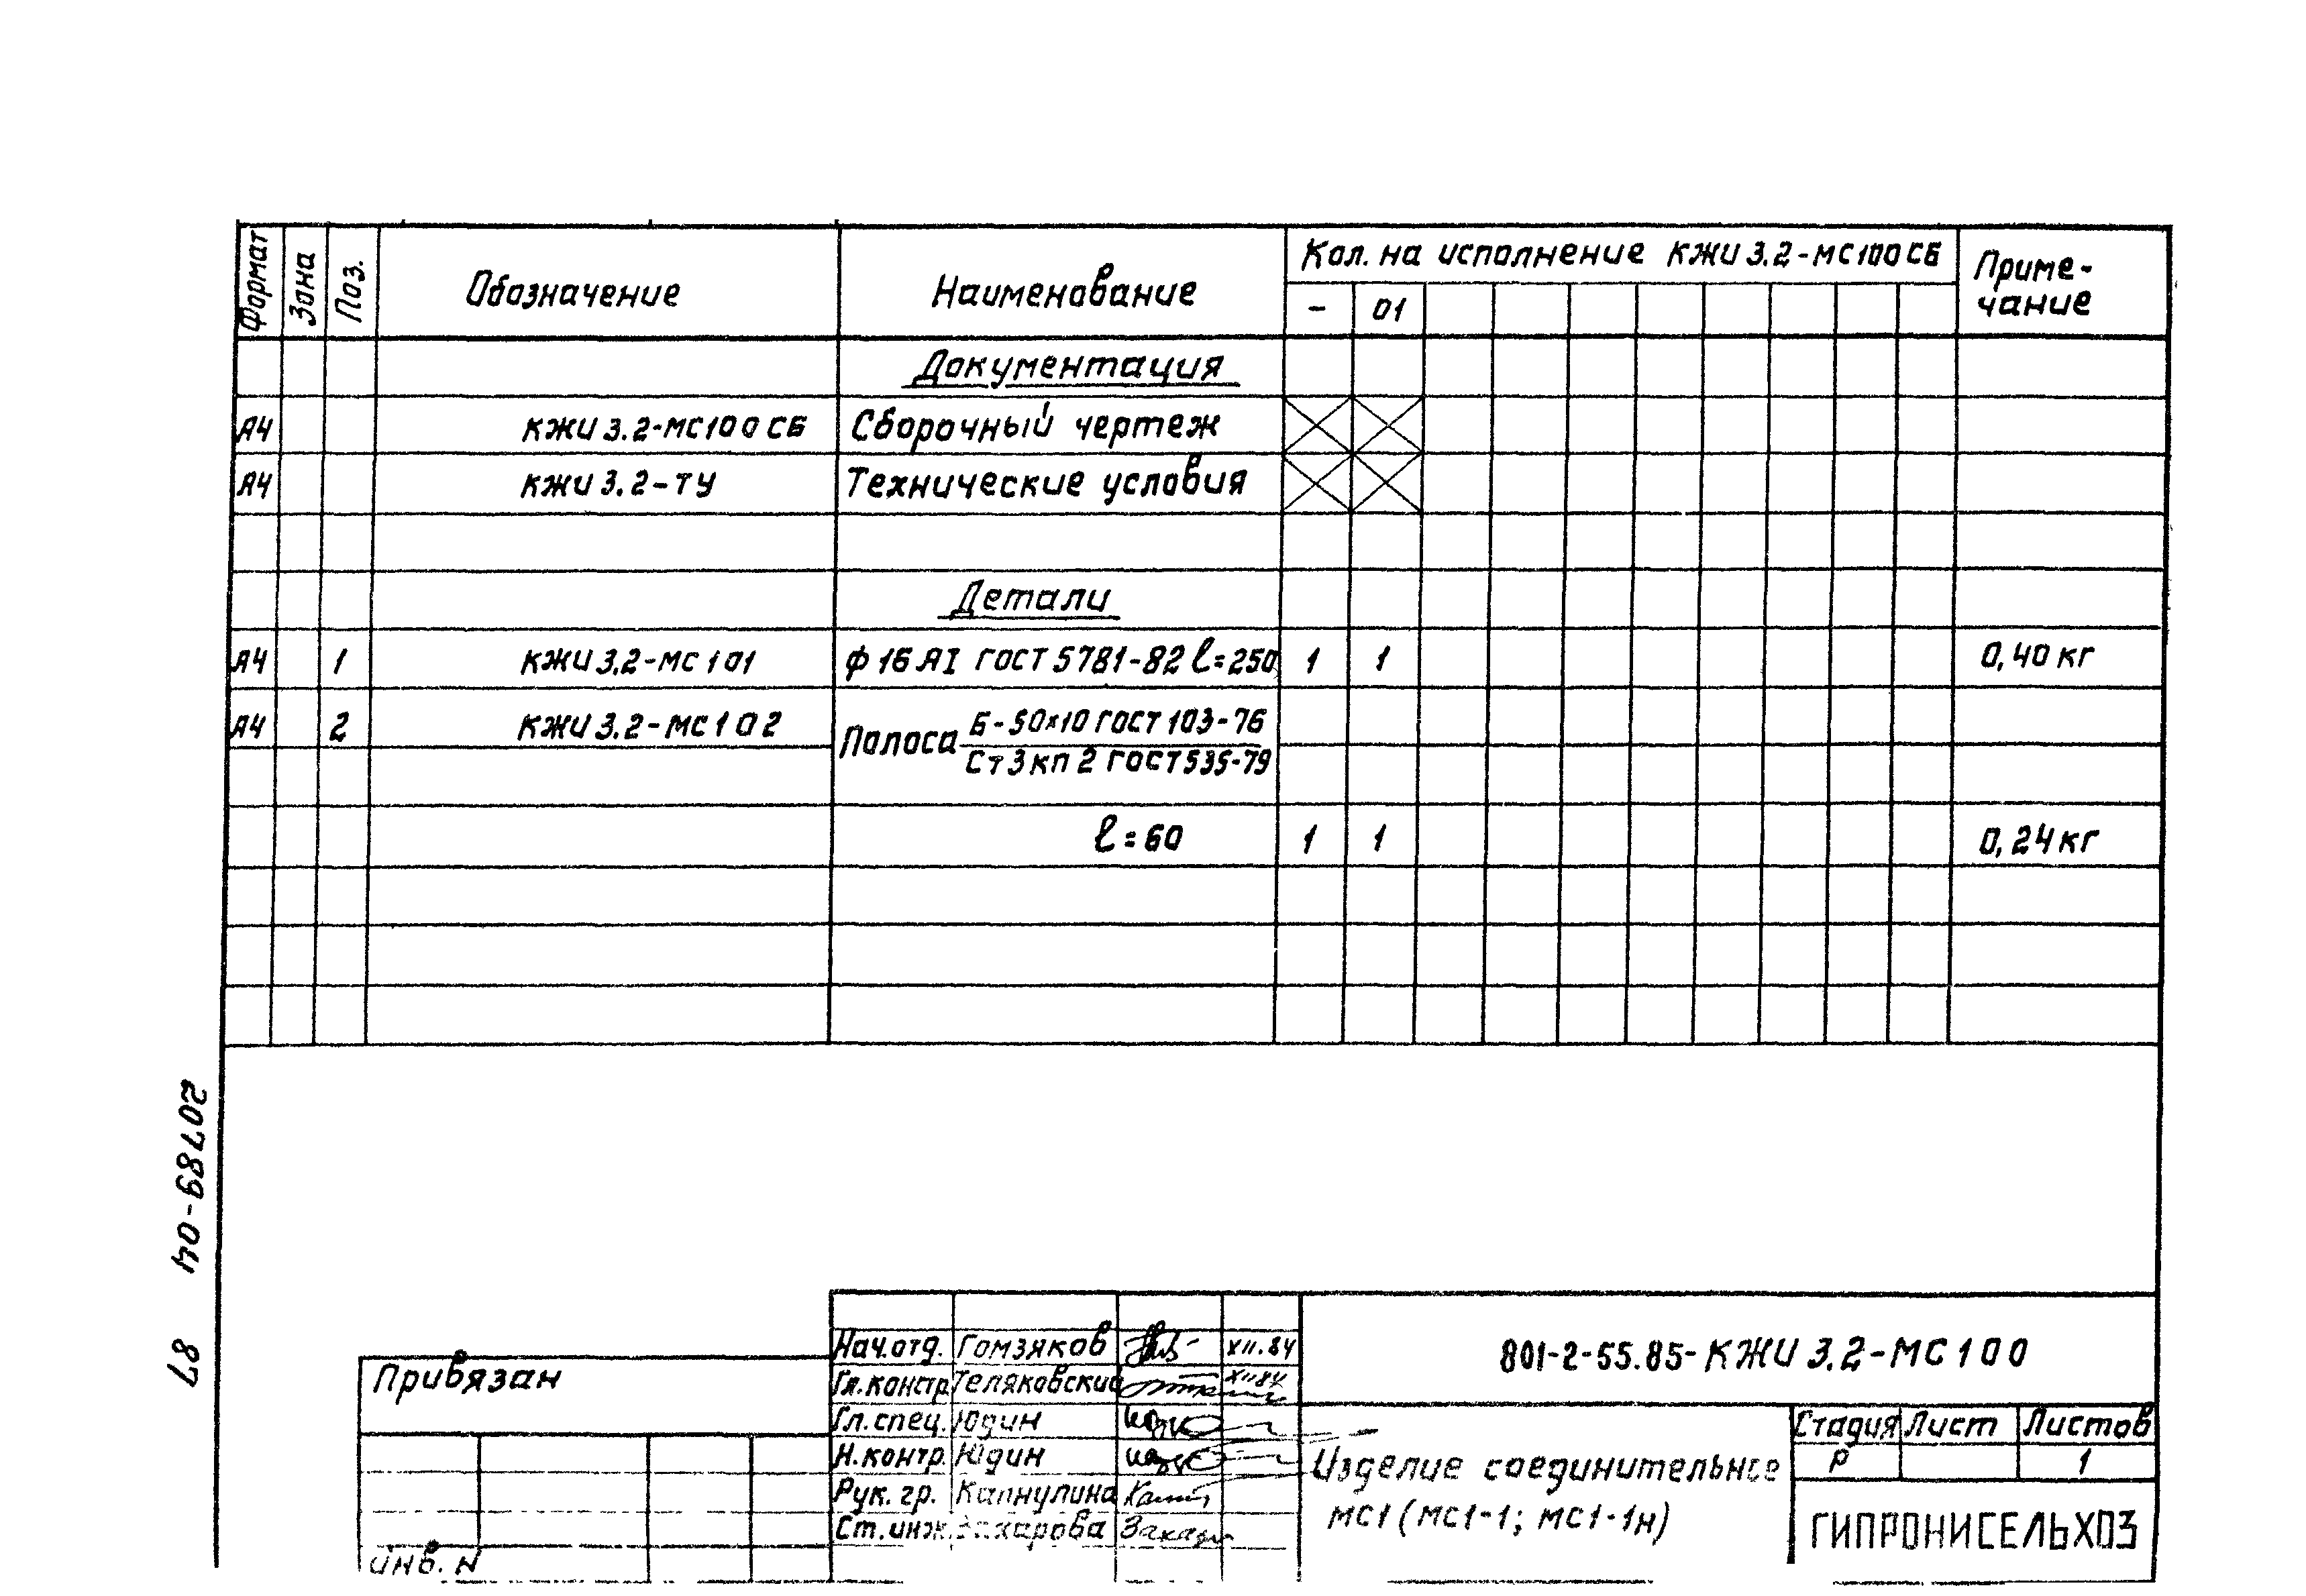 Формат Зона Поз. Обозначение Наименование Кол. на исполнение КЖИ 3.2-МС100СБ Приме-
чание
- 01
Документация
А4 КЖИ 3.2-МС100СБ Сборочный чертеж
А4 КЖИ 3.2-ТУ Технические условия
Детали
А4 1 КЖИ 3.2-МС101 ф16АI ГОСТ 5781-82 ℓ=250 1 1 0,40 кг
А4 2 КЖИ 3.2-МС102 Полоса Б-50×10 ГОСТ 103-76
Ст3кп2 ГОСТ 535-79
ℓ=60 1 1 0,24 кг
20789-04 87
Привязан
Инв. N
Нач.отд. Гомзяков XII.84
Гл.констр. Теляковский XII84
Гл.спец. Юдин
Н.контр. Юдин
Рук. гр.
Ст.инж. Захарова
801-2-55.85-КЖИ 3.2-МС100
Изделие соединительное
МС1 (МС1-1; МС1-1н)
Стадия Лист Листов
Р 1
ГИПРОНИСЕЛЬХОЗ